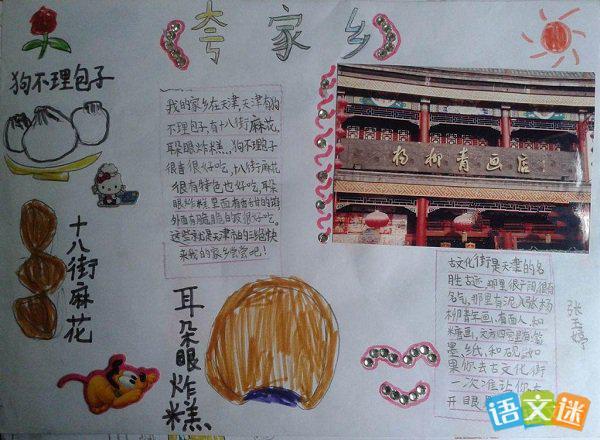 《夸家乡》
狗不理包子
我的家乡在天津,天津有狗
不理包子,有十八街麻花,
耳朵眼炸糕。狗不理包子
很香很好吃,十八街麻花
很有特色也好吃,耳朵
眼炸糕里面有香甜的馅
外面有脆脆的皮很好吃。
这些就是天津市的三绝快
来我的家乡尝尝吧!
杨柳青画店
十八街麻花
耳朵眼炸糕
古文化街是天津的名
胜古迹,那里很干净,很有
名气,那里有泥人张,杨
柳青年画,有面人,和
糖画,文房四宝里有笔
墨,纸,和砚,如
果你去古文化街
一次准让你大
开眼
张玉婷
语文迷